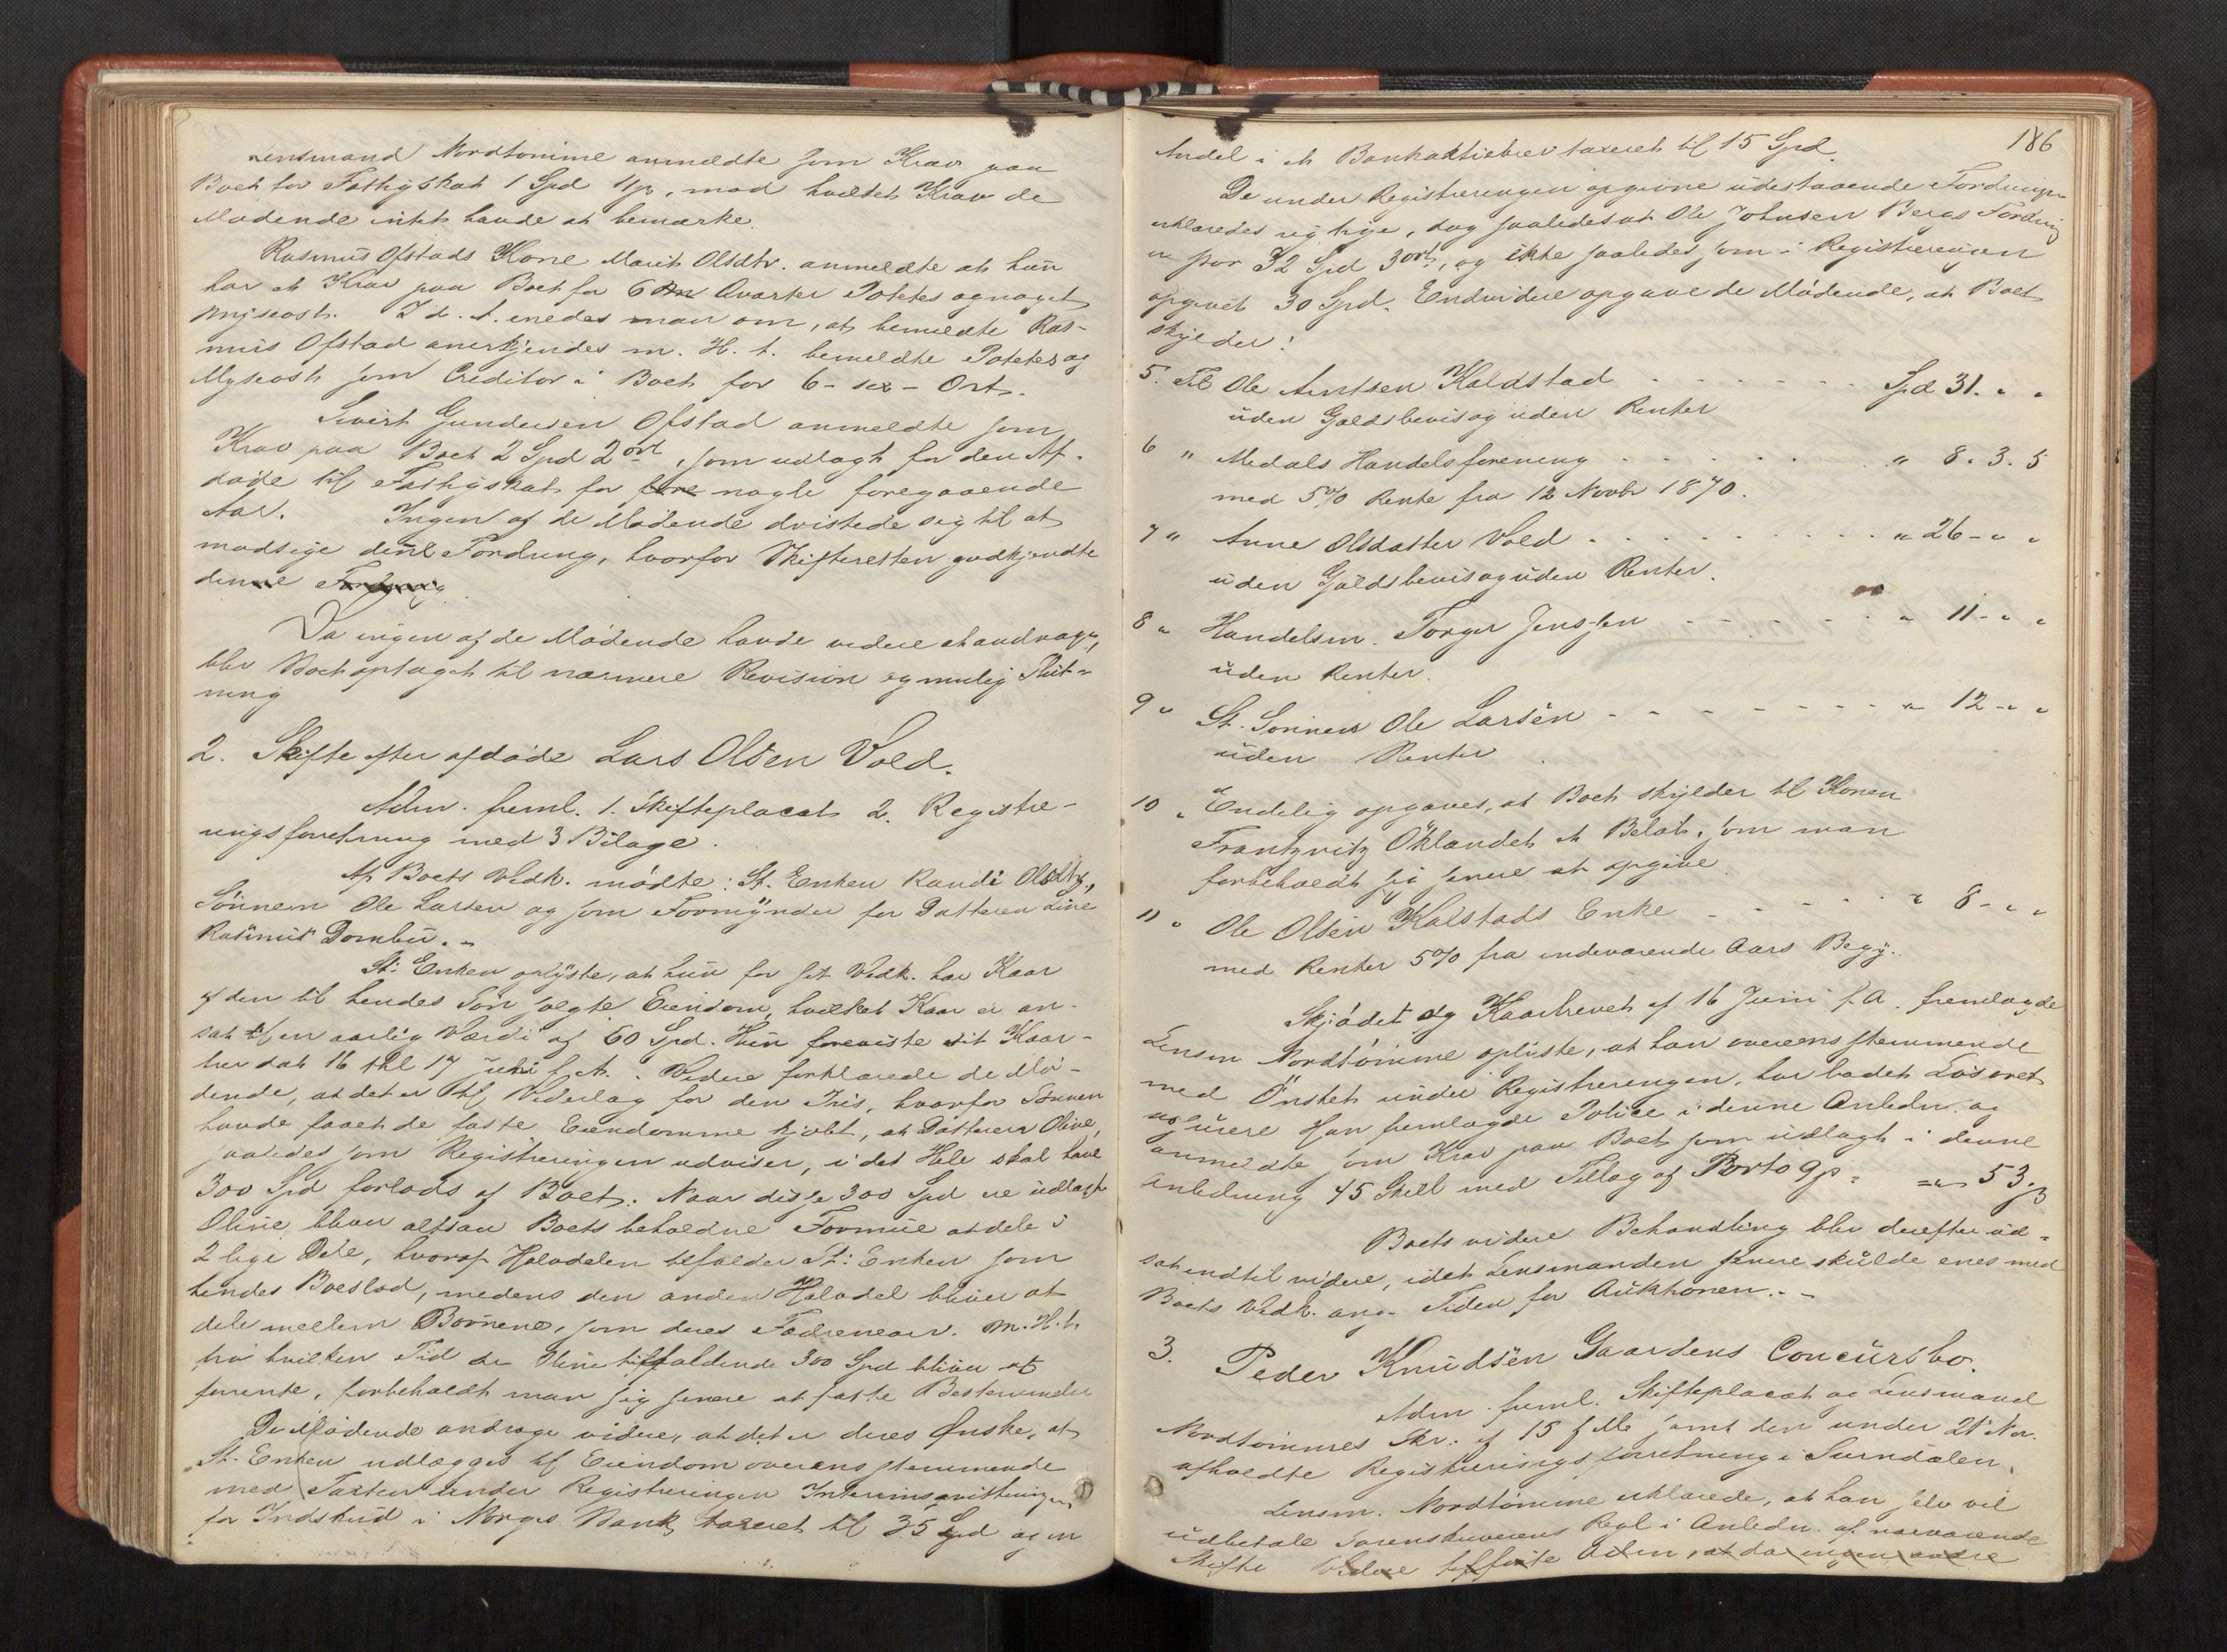 Lensmand Nordtømme anmeldte som Krav paa
Boet for Fattigskat 1 Spd 11 ß, mod hvilket Krav de
Mødende intet havde at bemærke.
Rasmus Ofstads Kone Marit Olsdtr. anmeldte at hun
har et Krav paa Boet for 6 Qvarter Potetes og noget
Myseost. I d. A. enedes man om, at bemeldte Ras-
mus Ofstad anerkjendes m. H. t. bemeldte Potetes og
Myseost som Creditor i Boet for 6 - sex - Ort.
Sivert Gundersen Ofstad anmeldte som
Krav paa Boet 2 Spd 2 ort, som udlagt for den Af-
døde til Fattigskat for nogle foregaaende
Aar. Ingen af de Mødende dristede sig til at
modsige denne Fordring, hvorfor Skifteretten godkjendte
denne Fordring.
Da ingen af de Mødende havde videre at andrage,
blev Boet optaget til nærmere Revision og mulig Slut-
ning
2. Skifte efter afdøde Lars Olsen Vold.
Adm. freml. 1. Skifteplacat 2. Registre-
ringsforretning med 3 Bilage.
Af Boets Vedk. mødte: St. Enken Randi Olsdtr.,
Sønnen Ole Larsen og som Formynder for Datteren Line
Rasmus Dombu. -
St: Enken oplyste, at hun for sit Vedk. har Kaar
af den til hendes Søn solgte Eiendom, hvilket Kaar er an-
sat til en aarlig Værdi af 60 Spd. Hun foreviste sit Kaar-
brev dat 16 thl 17 Juni f. A. Videre forklarede de Mø-
dende, at det er til Vederlag for den Pris, hvorfor Sønnen
havde faaet de faste Eiendomme kjøbt, at Datteren Oline,
saaledes som Registreringen udviser, i det Hele skal have
300 Spd forlods af Boet. Naar disse 300 Spd er udlagt
Oline, bliver altsaa Boets beholdne Formue at dele i
2 lige Dele, hvoraf Halvdelen tilfalder St: Enken som
hendes Boeslod, medens den anden Halvdel bliver at
dele mellem Børnene, som deres Fædrenearv. M. H. t.
fra hvilken Tid de Oline tilfaldende 300 Spd bliver at
forrente, forbeholdt man sig senere at fatte Bestemmelse
De Mødende androge videre, at det er deres Ønske, at
St. Enken udlægges til Eiendom overensstemmende
med Taxten under Registreringen Interimsqvitteringen
for Indskud i Norges Bank taxeret til 35 Spd og en
186
Andel i et Bankaktiebrev taxeret til 15 Spd.
De under Registreringen opgivne udestaaende Fordringer
erklæredes rigtige, dog saaledes at Ole Johnsen Bergs Fordring
er stor 32 Spd 3 ort, og ikke saaledes som i Registreringen
opgivet 30 Spd. Endvidere opgave de Mødende, at Boet
skylder:
5. Til Ole Arntsen Kaldstad - - - Spd 31. " "
uden Gjældsbevis og uden Renter
6 " Meldals Handelsforening - - - " 8. 3. 5
med 5% Rente fra 12 Novbr 1870.
7 " Anne Olsdatter Vold - - - " 26 - " "
uden Gjældsbevis og uden Renter.
8 " Handelsm. Torger Jenssen - - - " 11 - " "
uden Renter.
9 " St. Sønnen Ole Larsen - - - " 12 - " "
uden Renter
10 " Endelig opgaves, at Boet skylder til Konen
Øklandet et Beløb, som man
forbeholdt sig senere at opgive.
11 " Ole Olsen Kalstads Enke - - - " 8 - " "
med Renter 5% fra indeværende Aars Begy.
Skjødet og Kaarbrevet af 16 Juni f. A. fremlagde
Lensm Nordtømme oplyste, at han overensstemmende
med Ønsket under Registreringen, har ladet Løsøret
assurere Han fremlagde Police i denne Anledn. og
anmeldte som Krav paa Boet som udlagt i denne
Anledning 45 Skill med Tillæg af Porto 9 ß = " - " 53 ß
Boets videre Behandling blev derefter ud-
sat indtil videre, idet Lensmanden senere skulde enes med
Boets Vedk. ang. Tiden for Auktionen. -
3. Peder Knudsen Gaardens Concursbo.
Adm. freml. Skifteplacat og Lensmand
Nordtømmes Skr: af 15 f. M. samt den under 21 Nov.
afholdte Registreringsforretning i Surndalen.
Lensm. Nordtømme erklærede, at han selv vil
udbetale Sorenskriverens Regl i Anledn. af nærværende
Skifte Videre tilføiede Adm, at da ingen andre